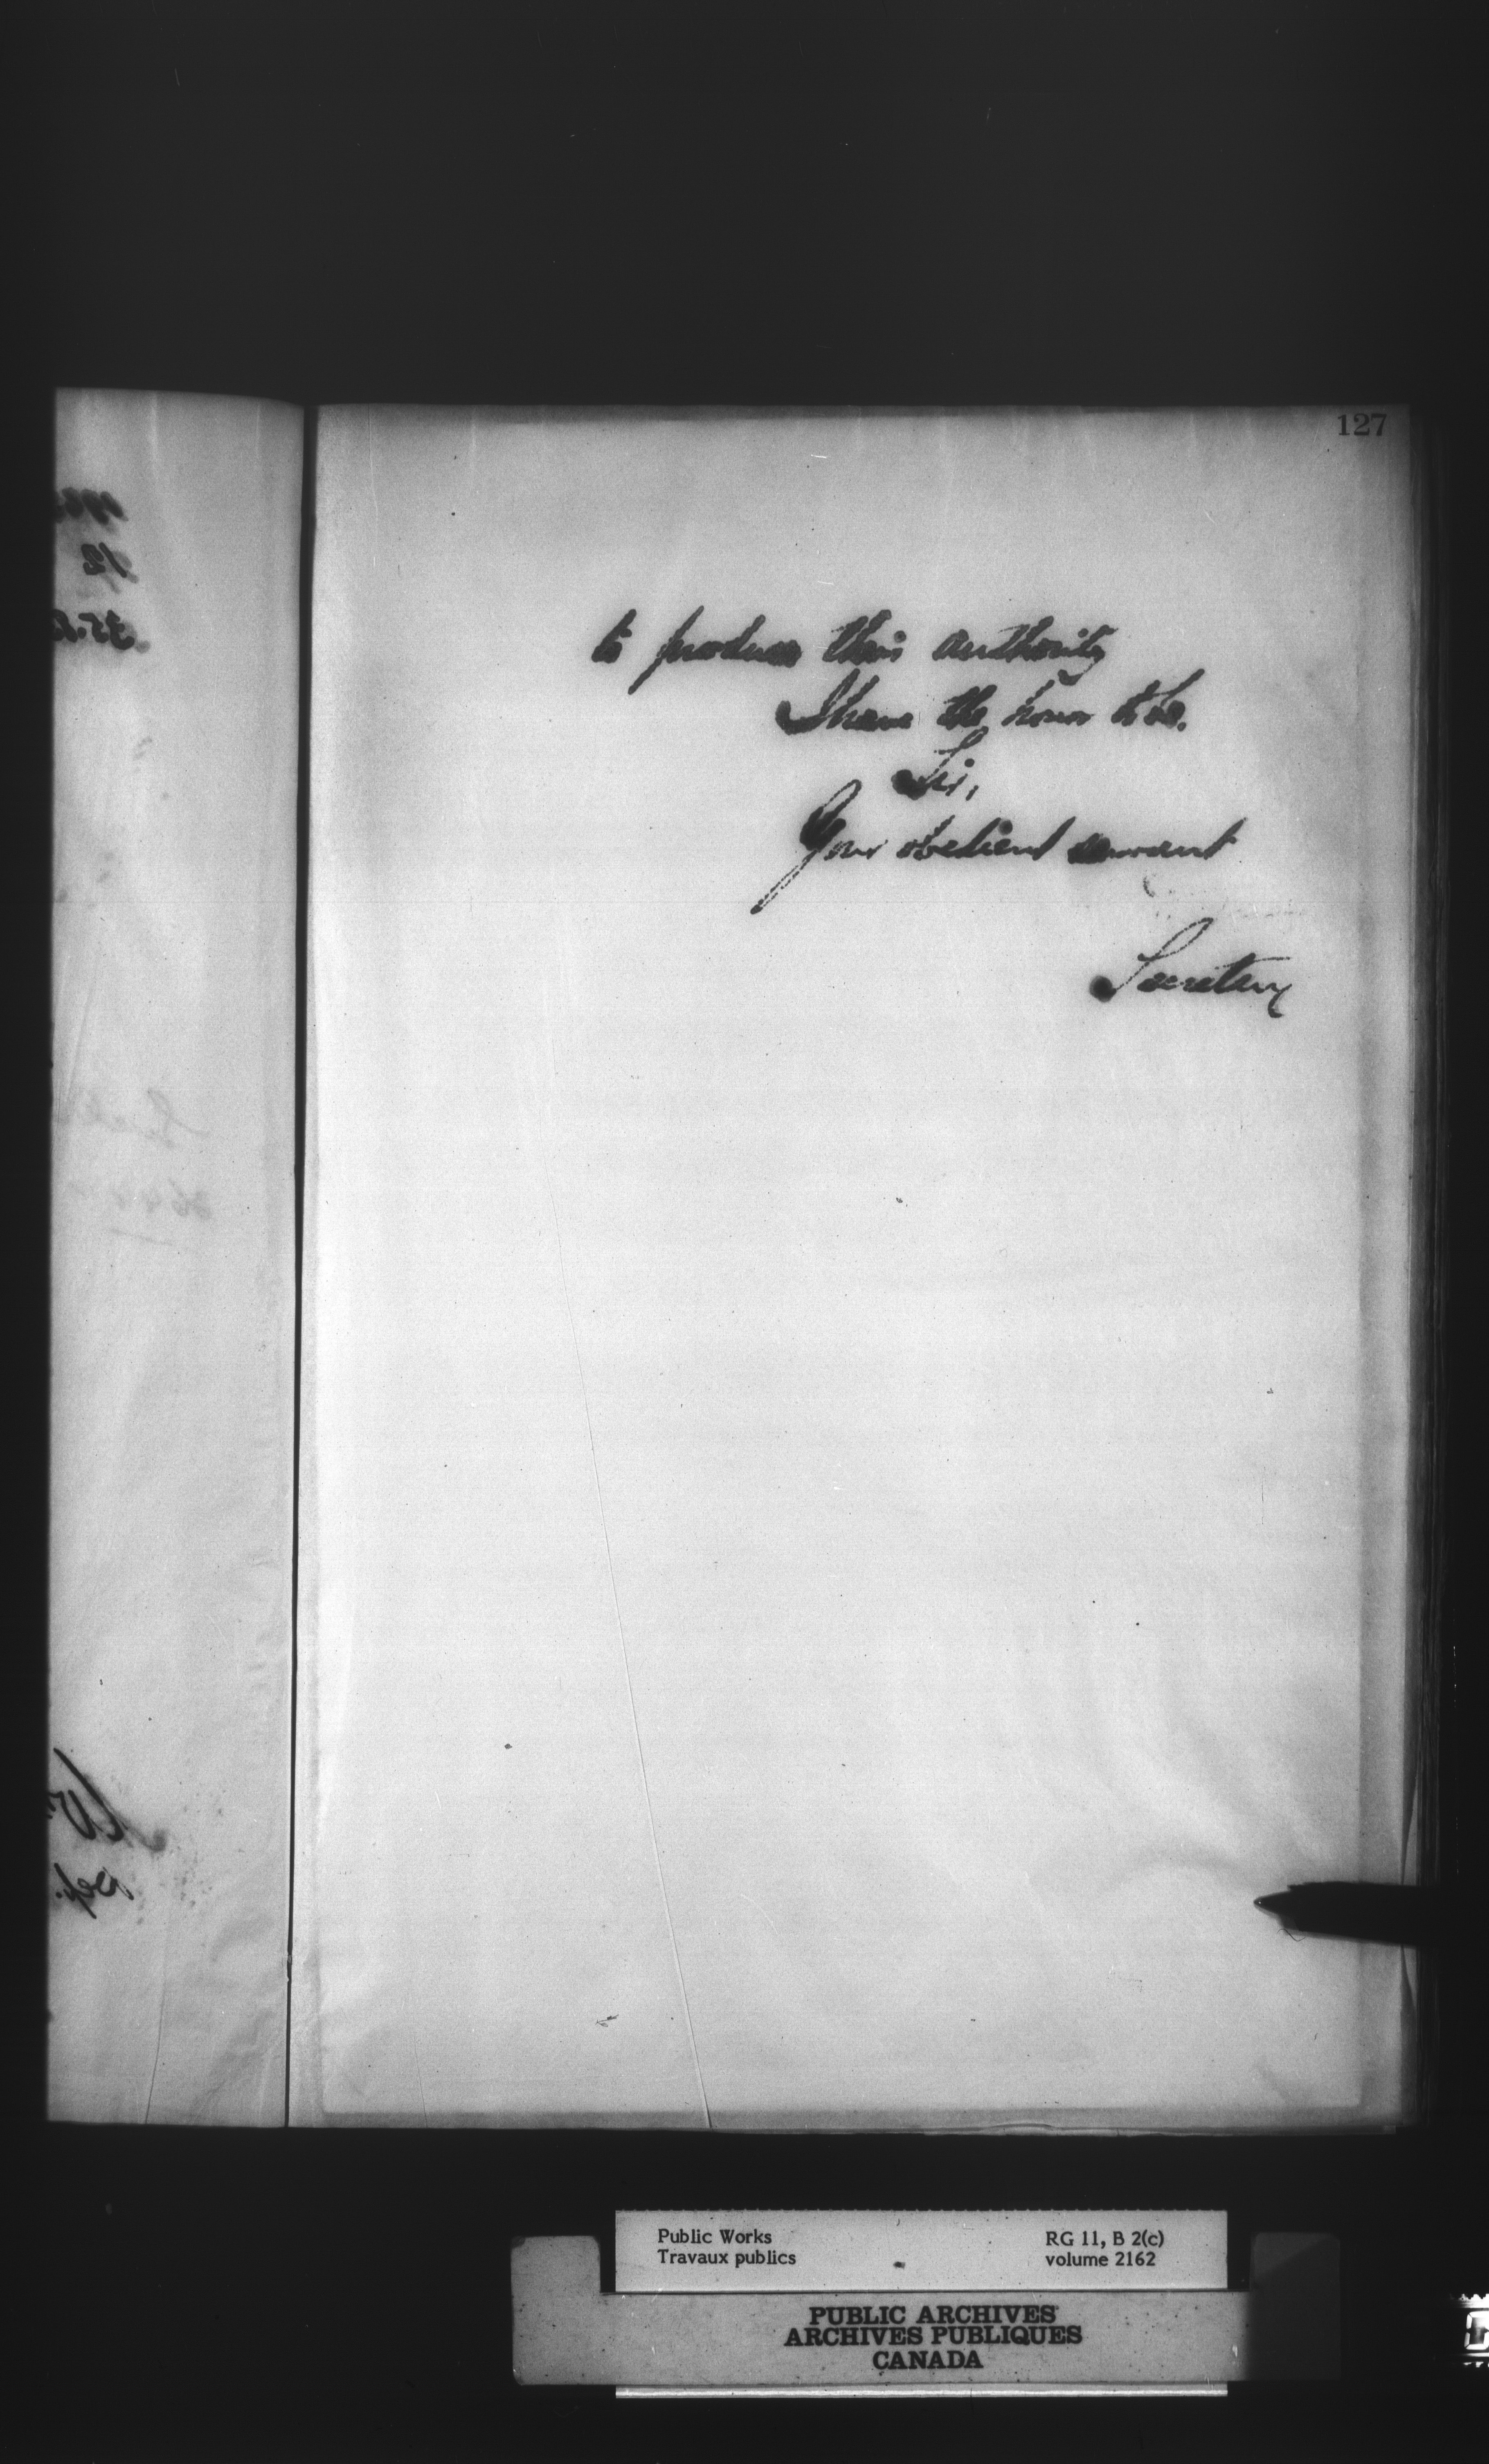 127
to produce this authority
I have the honor to be.
Sir,
Your obedient servant
Secretary
Public Works
Travaux publics
RG 11, B 2(c)
volume 2162
PUBLIC ARCHIVES
ARCHIVES PUBLIQUES
CANADA